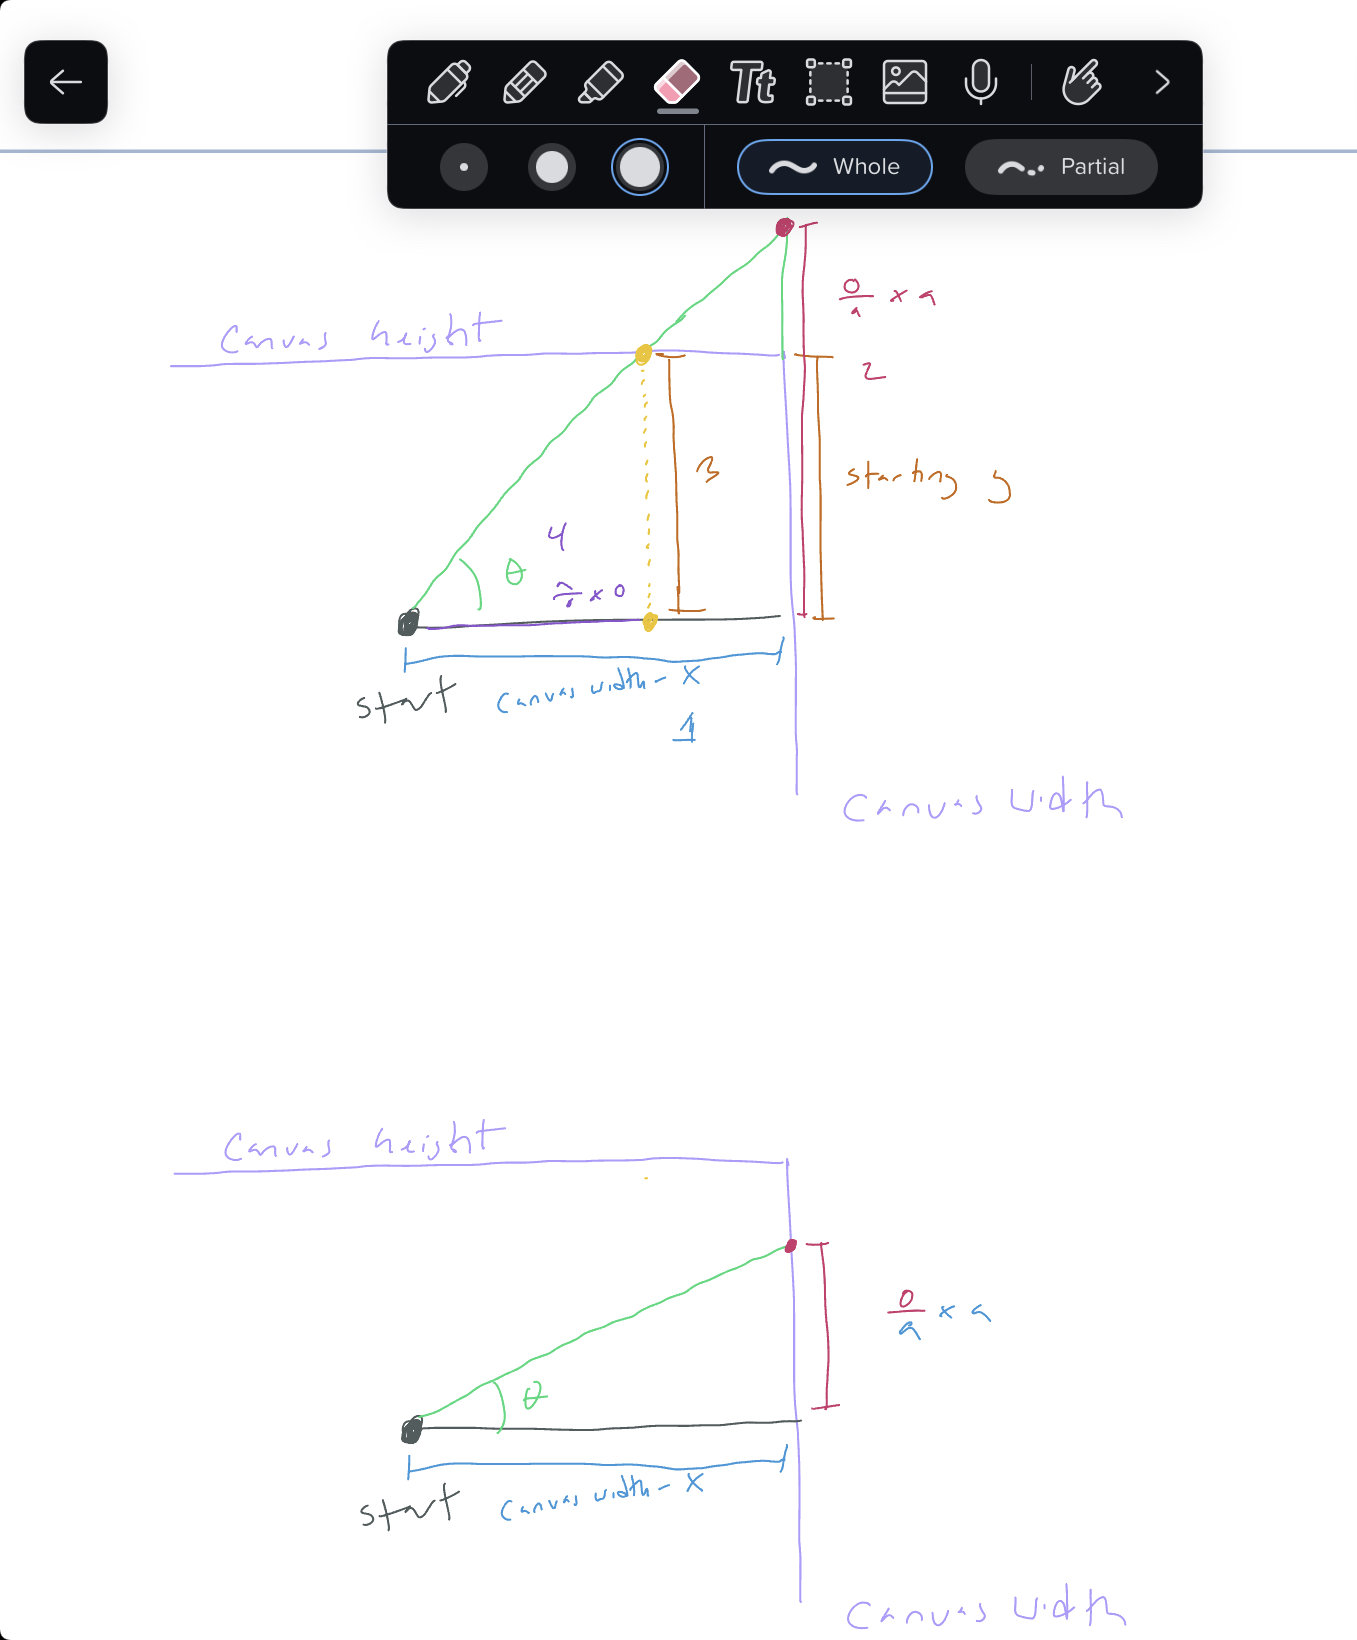 Tt
Whole
Partial
o/a x a
Canvas height
2
3
starting y
4
θ
a/o x o
start
Canvas width - x
1
Canvas width
Canvas height
o/a x a
θ
start
Canvas width - x
Canvas width